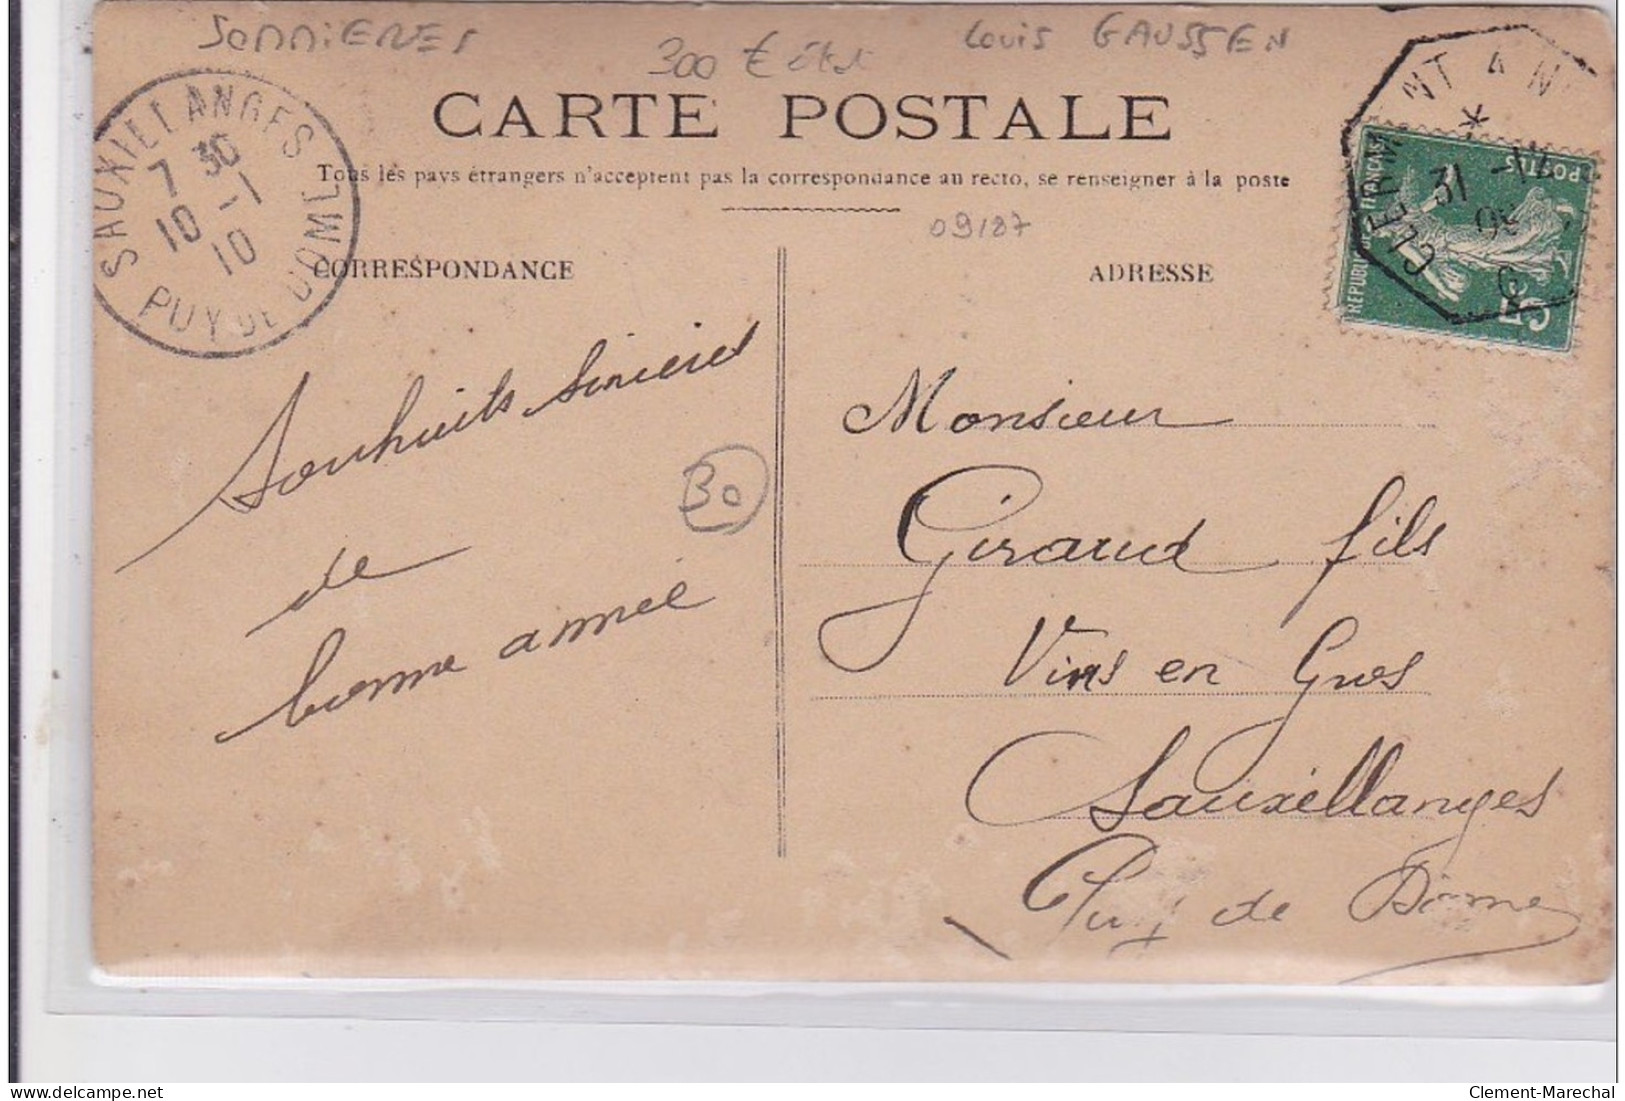 SOMMIERES
300 € état
Louis GAUSSEN
CARTE POSTALE
Tous les pays étrangers n'acceptent pas la correspondance au recto, se renseigner à la poste
09/87
CORRESPONDANCE
ADRESSE
SAUXILLANGES
7 30
10 -1
10
PUY DE DOME
CLERMONT A N
31 -12
09
REPUBLIQUE FRANÇAISE
POSTES
5c
Souhaits sincères
de
bonne année
30
Monsieur
Giraud fils
Vins en Gros
Sauxillanges
Puy de Dôme
delcampe.net
Clement-Marechal